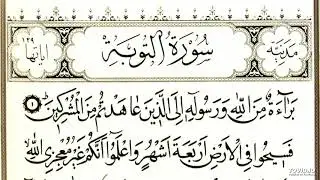 مدنية
سورة التوبة
اياتها ١٢٩
بَرَآءَةٌ مِّنَ اللّٰهِ وَرَسُوْلِهٖٓ اِلَى الَّذِيْنَ عَاهَدْتُّمْ مِّنَ الْمُشْرِكِيْنَ ١
فَسِيْحُوْا فِى الْاَرْضِ اَرْبَعَةَ اَشْهُرٍ وَّاعْلَمُوْٓا اَنَّكُمْ غَيْرُ مُعْجِزِى اللّٰهِ